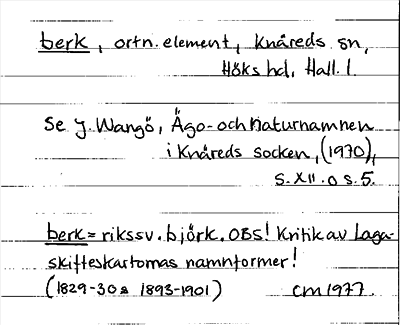 berk, ortn. element, Knäreds sn,
Höks hd, Hall. l.
Se J. Wangö, Ägo- och Naturnamnen
i Knäreds socken, (1970),
s. XII. o s. 5.
berk = rikssv. björk. OBS! Kritik av Laga-
skifteskartornas namnformer!
(1829-30 & 1893-1901) CM 1977.